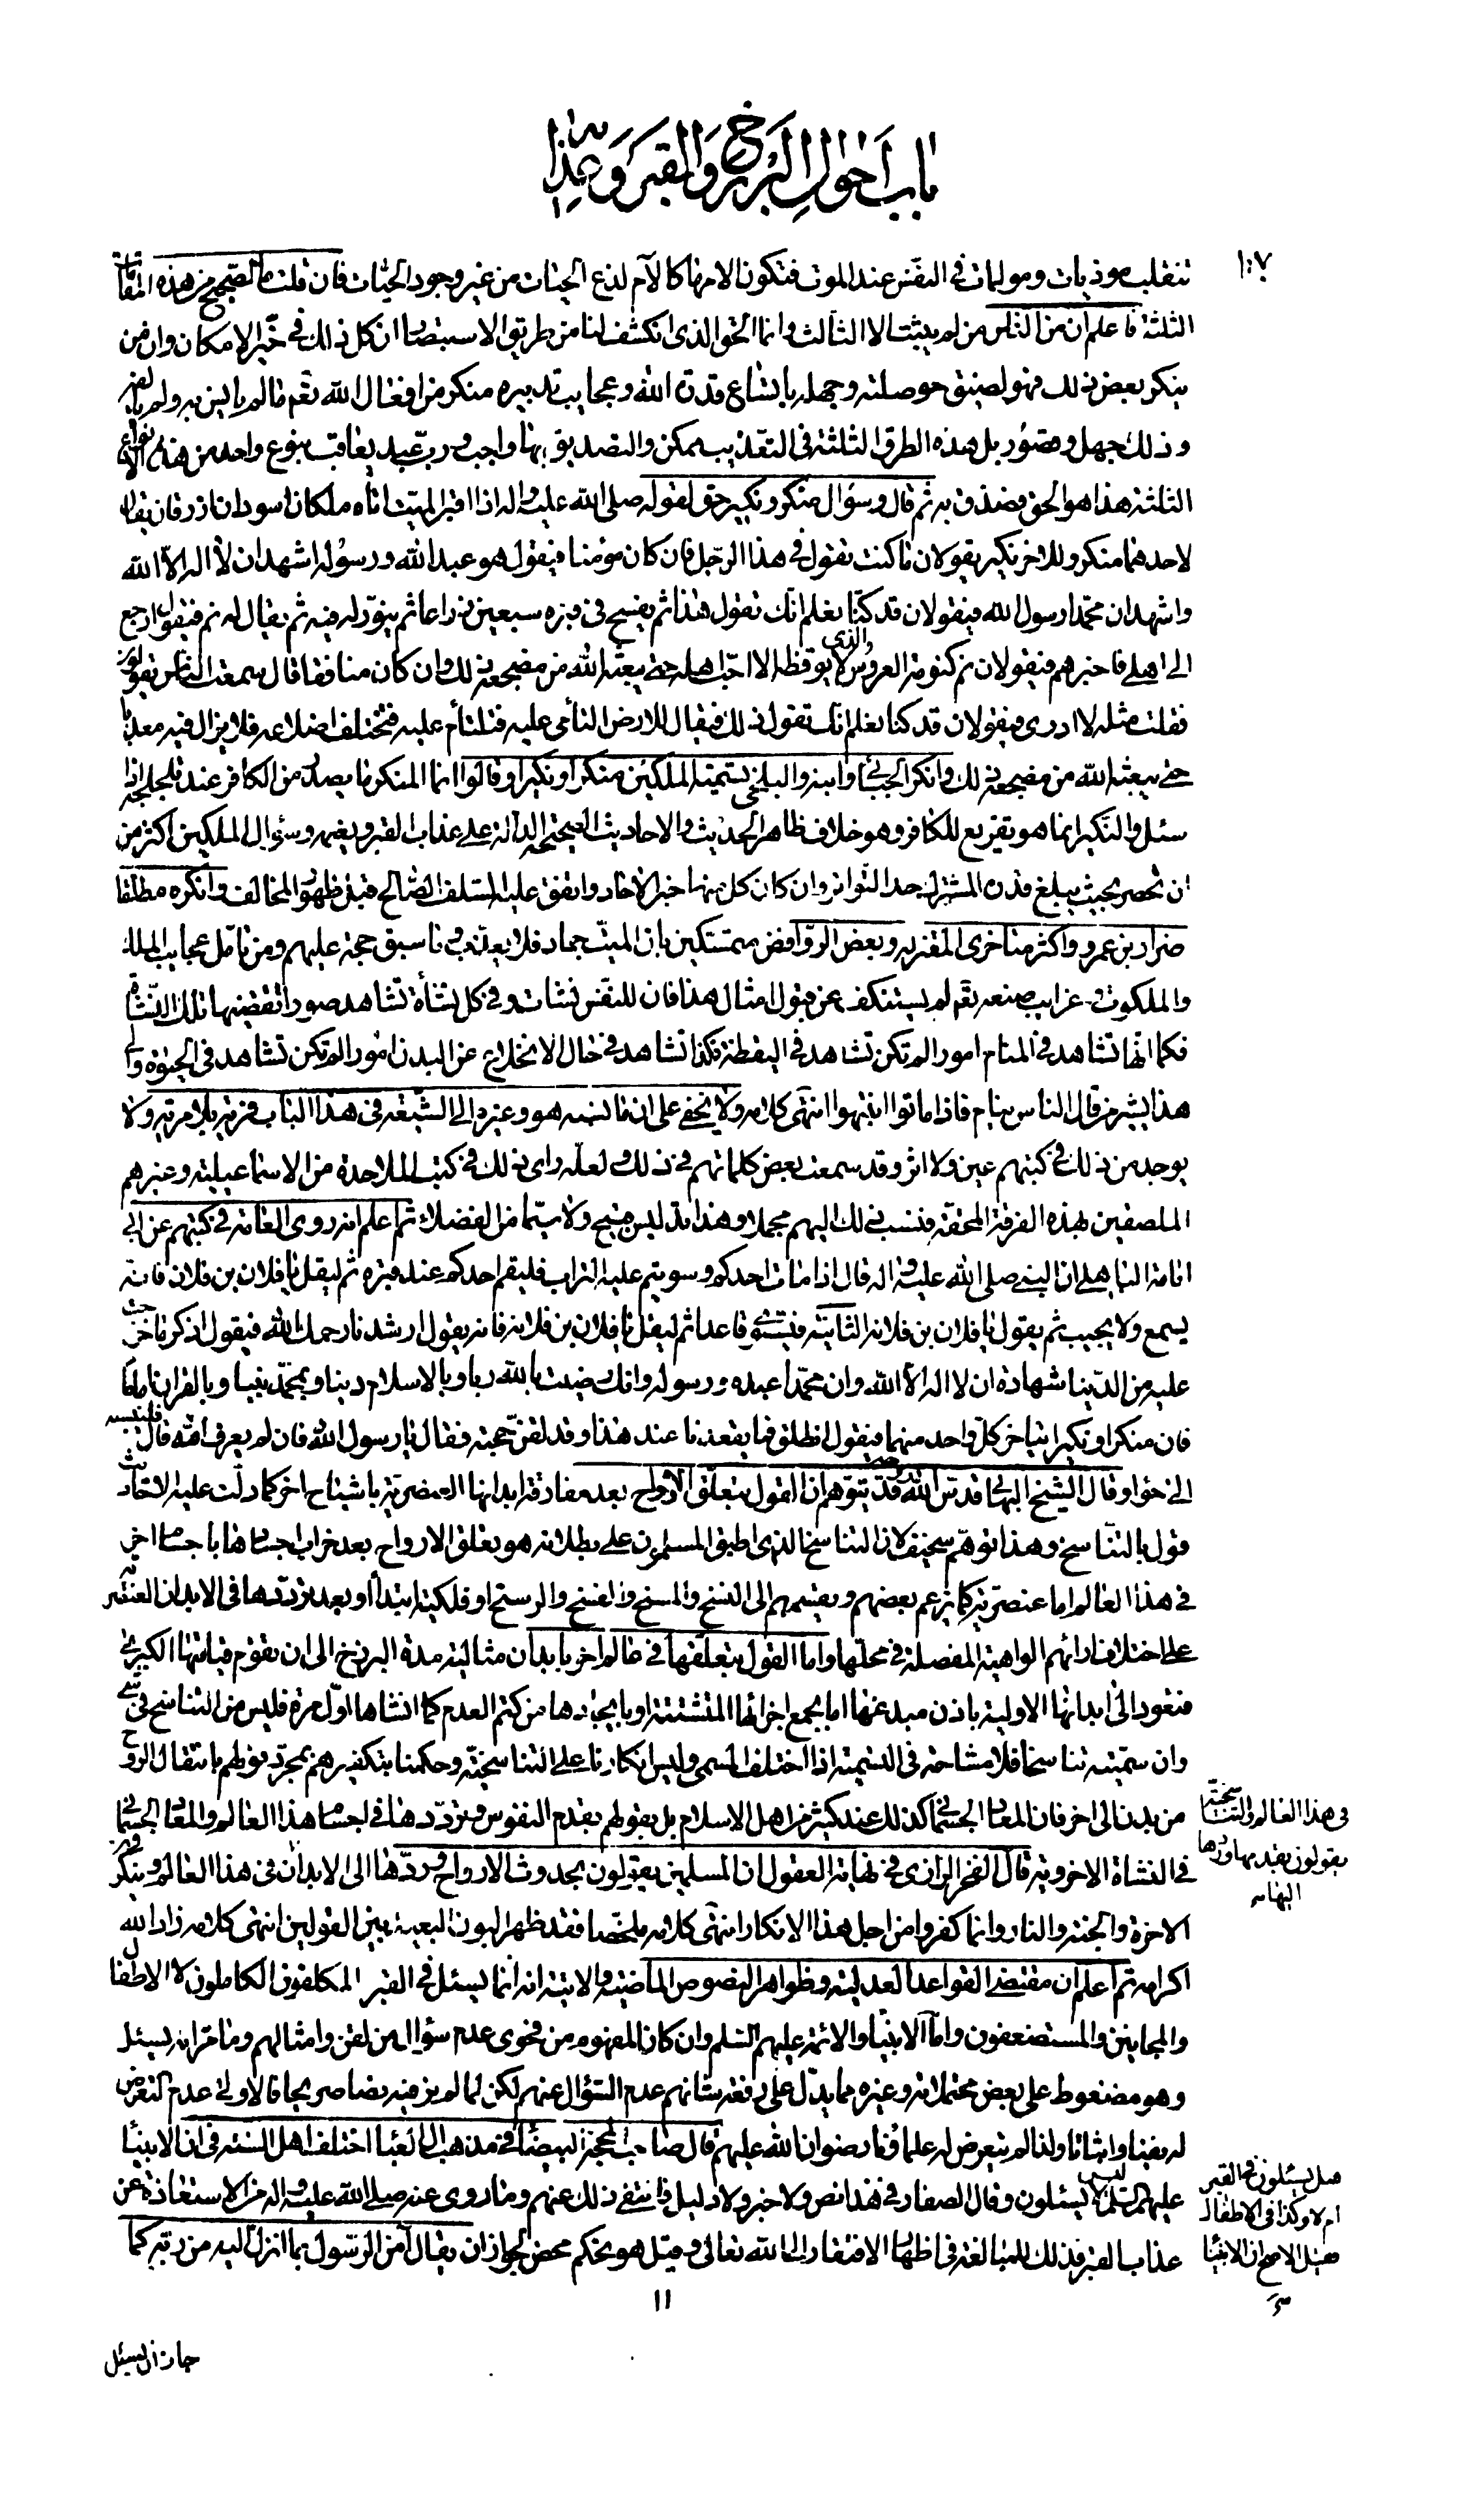 باب احوال البرزخ والقبر وعذابه
١٠٧
تنقلب موذيات ومولمات في النفس عند الموت فتكون الامها كالآم لذع الحيات من غير وجود الحيات فان قلت ما الصحيح من هذه المقامات
الثلثة فاعلم ان من الناس من لم يثبت الا الثالث وانما الحق الذي انكشف لنا من طريق الاستبصار ان كل ذلك في حيز الامكان وان من
ينكر بعض ذلك فهو لضيق حوصلته وجهله باتساع قدرة الله وعجايب تدبيره منكر من افعال الله تعم ما لم يانس به ولم يالفه
وذلك جهل وقصور بل هذه الطرق الثلثة في التعذيب ممكن والتصديق بها واجب ورب عبد يعاقب بنوع واحد من هذه الانواع
الثلثة هذا هو الحق فصدق به ثم قال وسؤال منكر ونكير حق لقوله صلى الله عليه واله اذا اقبر الميت اتاه ملكان اسودان ازرقان يقال
لاحدهما منكر وللاخر نكير يقولان ما كنت تقول في هذا الرجل فان كان مؤمنا فيقول هو عبد الله ورسوله اشهد ان لا اله الا الله
واشهد ان محمدا رسول الله فيقولان قد كنا نعلم انك تقول هذا ثم يفسح في قبره سبعين ذراعا ثم ينور له فيه ثم يقال له نم فيقول ارجع
الى اهلي فاخبرهم فيقولان نم كنومة العروس الذي لا يوقظه الا احب اهله حتى يبعثه الله من مضجعه ذلك وان كان منافقا قال سمعت الناس يقولون
فقلت مثله لا ادري فيقولان قد كنا نعلم انك تقول ذلك فيقال للارض التأمي عليه فتلتأم عليه فتختلف اضلاعه فلا يزال فيه معذبا
حتى يبعثه الله من مضجعه ذلك وانكر الجبائي وابنه والبلخي تسمية الملكين منكرا ونكيرا وقالوا انما المنكر ما يصدر من الكافر عند تلجلجه اذا
سئل والنكير انما هو تقريع للكافر وهو خلاف ظاهر الحديث والاحاديث الصحيحة الدالة على عذاب القبر ونعيمه وسئوال الملكين اكثر من
ان تحصر بحيث يبلغ قدره المشترك حد التواتر وان كان كل منها خبر الاحاد واتفق عليه السلف الصالح قبل ظهور المخالف وانكره مطلقا
ضرار بن عمرو واكثر متاخري المعتزلة وبعض الروافض متمسكين بان الميت جماد فلا يعذب وما سبق حجة عليهم ومن تامل عجايب الملك
والملكوت وغرايب صنعه تعم لم يستنكف عن قبول امثال هذا فان للنفس نشات وفي كل نشأة تشاهد صورا تقتضيها تلك النشاة
فكما انها تشاهد في المنام امورا لم تكن تشاهد في اليقظة فكذا تشاهد في حال الانخلاع عن البدن امورا لم تكن تشاهد في الحيوة والى
هذا يشير من قال الناس نيام فاذا ماتوا انتبهوا انتهى كلامه ولا يخفى على ان ما نسبه هو وغيره الى الشيعة في هذا الباب فرية بلا مرية ولا
يوجد من ذلك في كتبهم عين ولا اثر وقد سمعت بعض كلماتهم في ذلك ولعله راى ذلك في كتب الملاحدة من الاسماعيلية وغيرهم
الملصقين بهذه الفرقة المحقة فنسب ذلك اليهم مجملا وهذا تدليس قبيح ولا سيما من الفضلاء ثم اعلم انه روى العامة في كتبهم عن ابي
امامة الباهلي ان النبي صلى الله عليه واله قال اذا مات احدكم وسويتم عليه التراب فليقم احدكم عند قبره ثم ليقل يا فلان بن فلان فانه
يسمع ولا يجيب ثم يقول يا فلان بن فلانة الثانية فيستوي قاعدا ثم ليقل يا فلان بن فلانة فانه يقول ارشدنا رحمك الله فيقول اذكر ما خرجت
عليه من الدنيا شهادة ان لا اله الا الله وان محمدا عبده ورسوله وانك رضيت بالله ربا وبالاسلام دينا وبمحمد نبيا وبالقران اماما
فان منكرا ونكيرا يتاخر كل واحد منهما فيقول انطلق فما يقعدنا عند هذا وقد لقن حجته فقال يا رسول الله فان لم يعرف امه قال فلينسبه
الى حوا وقال الشيخ البهائي قدس الله روحه قد يتوهم ان القول بتعلق الارواح بعد مفارقة ابدانها العنصرية باشباح اخر كما دلت عليه الاحاديث
قول بالتناسخ وهذا توهم سخيف لان التناسخ الذي اطبق المسلمون على بطلانه هو تعلق الارواح بعد خراب اجسادها باجسام اخر
في هذا العالم اما عنصرية كما يزعم بعضهم ويقسمهم الى النسخ والمسخ والفسخ والرسخ او فلكية ابتداء او بعد ترددها في الابدان العنصرية
على اختلاف ارائهم الواهية المفصلة في محلها واما القول بتعلقها في عالم اخر بابدان مثالية مدة البرزخ الى ان تقوم قيامتها الكبرى
فتعود الى ابدانها الاولية باذن مبدعها اما بجمع اجزائها المتشتتة او بايجادها من كتم العدم كما انشاها اول مرة فليس من التناسخ في شيء
وان سميته تناسخا فلا مشاحة في التسمية اذا اختلف المسمى وليس انكارنا على التناسخية وحكمنا بتكفيرهم بمجرد قولهم بانتقال الروح
من بدن الى اخر فان المعاد الجسماني كذلك عند كثير من اهل الاسلام بل بقولهم بقدم النفوس وترددها في اجسام هذا العالم والمعاد الجسماني
في النشاة الاخروية قال الفخر الرازي في نهاية العقول ان المسلمين يقولون بحدوث الارواح وردها الى الابدان في هذا العالم وينكرون
الاخرة والجنة والنار وانما كفروا من اجل هذا الانكار انتهى كلامه ملخصا فقد ظهر البون البعيد بين القولين انتهى كلامه زاد الله
اكرامه ثم اعلم ان مقتضى القواعد العدلية وظواهر النصوص الماضية والاتية انه انما يسئل في القبر المكلفون الكاملون لا الاطفال
والمجانين والمستضعفون واما الانبياء والائمة عليهم السلم وان كان المفهوم من فحوى عدم سؤال من لقن وامثالهم وما مر انه يسئل
وهو مضغوط على بعض محتملاته وغيره مما يدل على رفعة شانهم عدم السؤال عنهم لكن لما لم يرد فيه نصا صريحا فالاولى عدم التعرض
له نفيا واثباتا ولذا لم يتعرض له علماؤنا رضوان الله عليهم قال صاحب المحجة البيضاء في مذهب ال العبا اختلف اهل السنة في ان الانبياء
عليهم السلم لا يسئلون وقال الصفار في هذا نص ولا خبر ولا دليل فانتفى ذلك عنهم وما روى عنه صلى الله عليه واله من الاستعاذة عن
عذاب القبر فذلك للمبالغة في اظهار الافتقار الى الله تعالى وقيل هو تحكم محض لجواز ان يقال آمن الرسول بما انزل اليه من ربه كما
في هذا العالم والتناسخية
يقولون بقدمها وردها
اليها
هل يسئلون في القبر
ام لا وكذا في الاطفال
فقيل الاصح ان الانبياء
١١
جاز ان يسئل